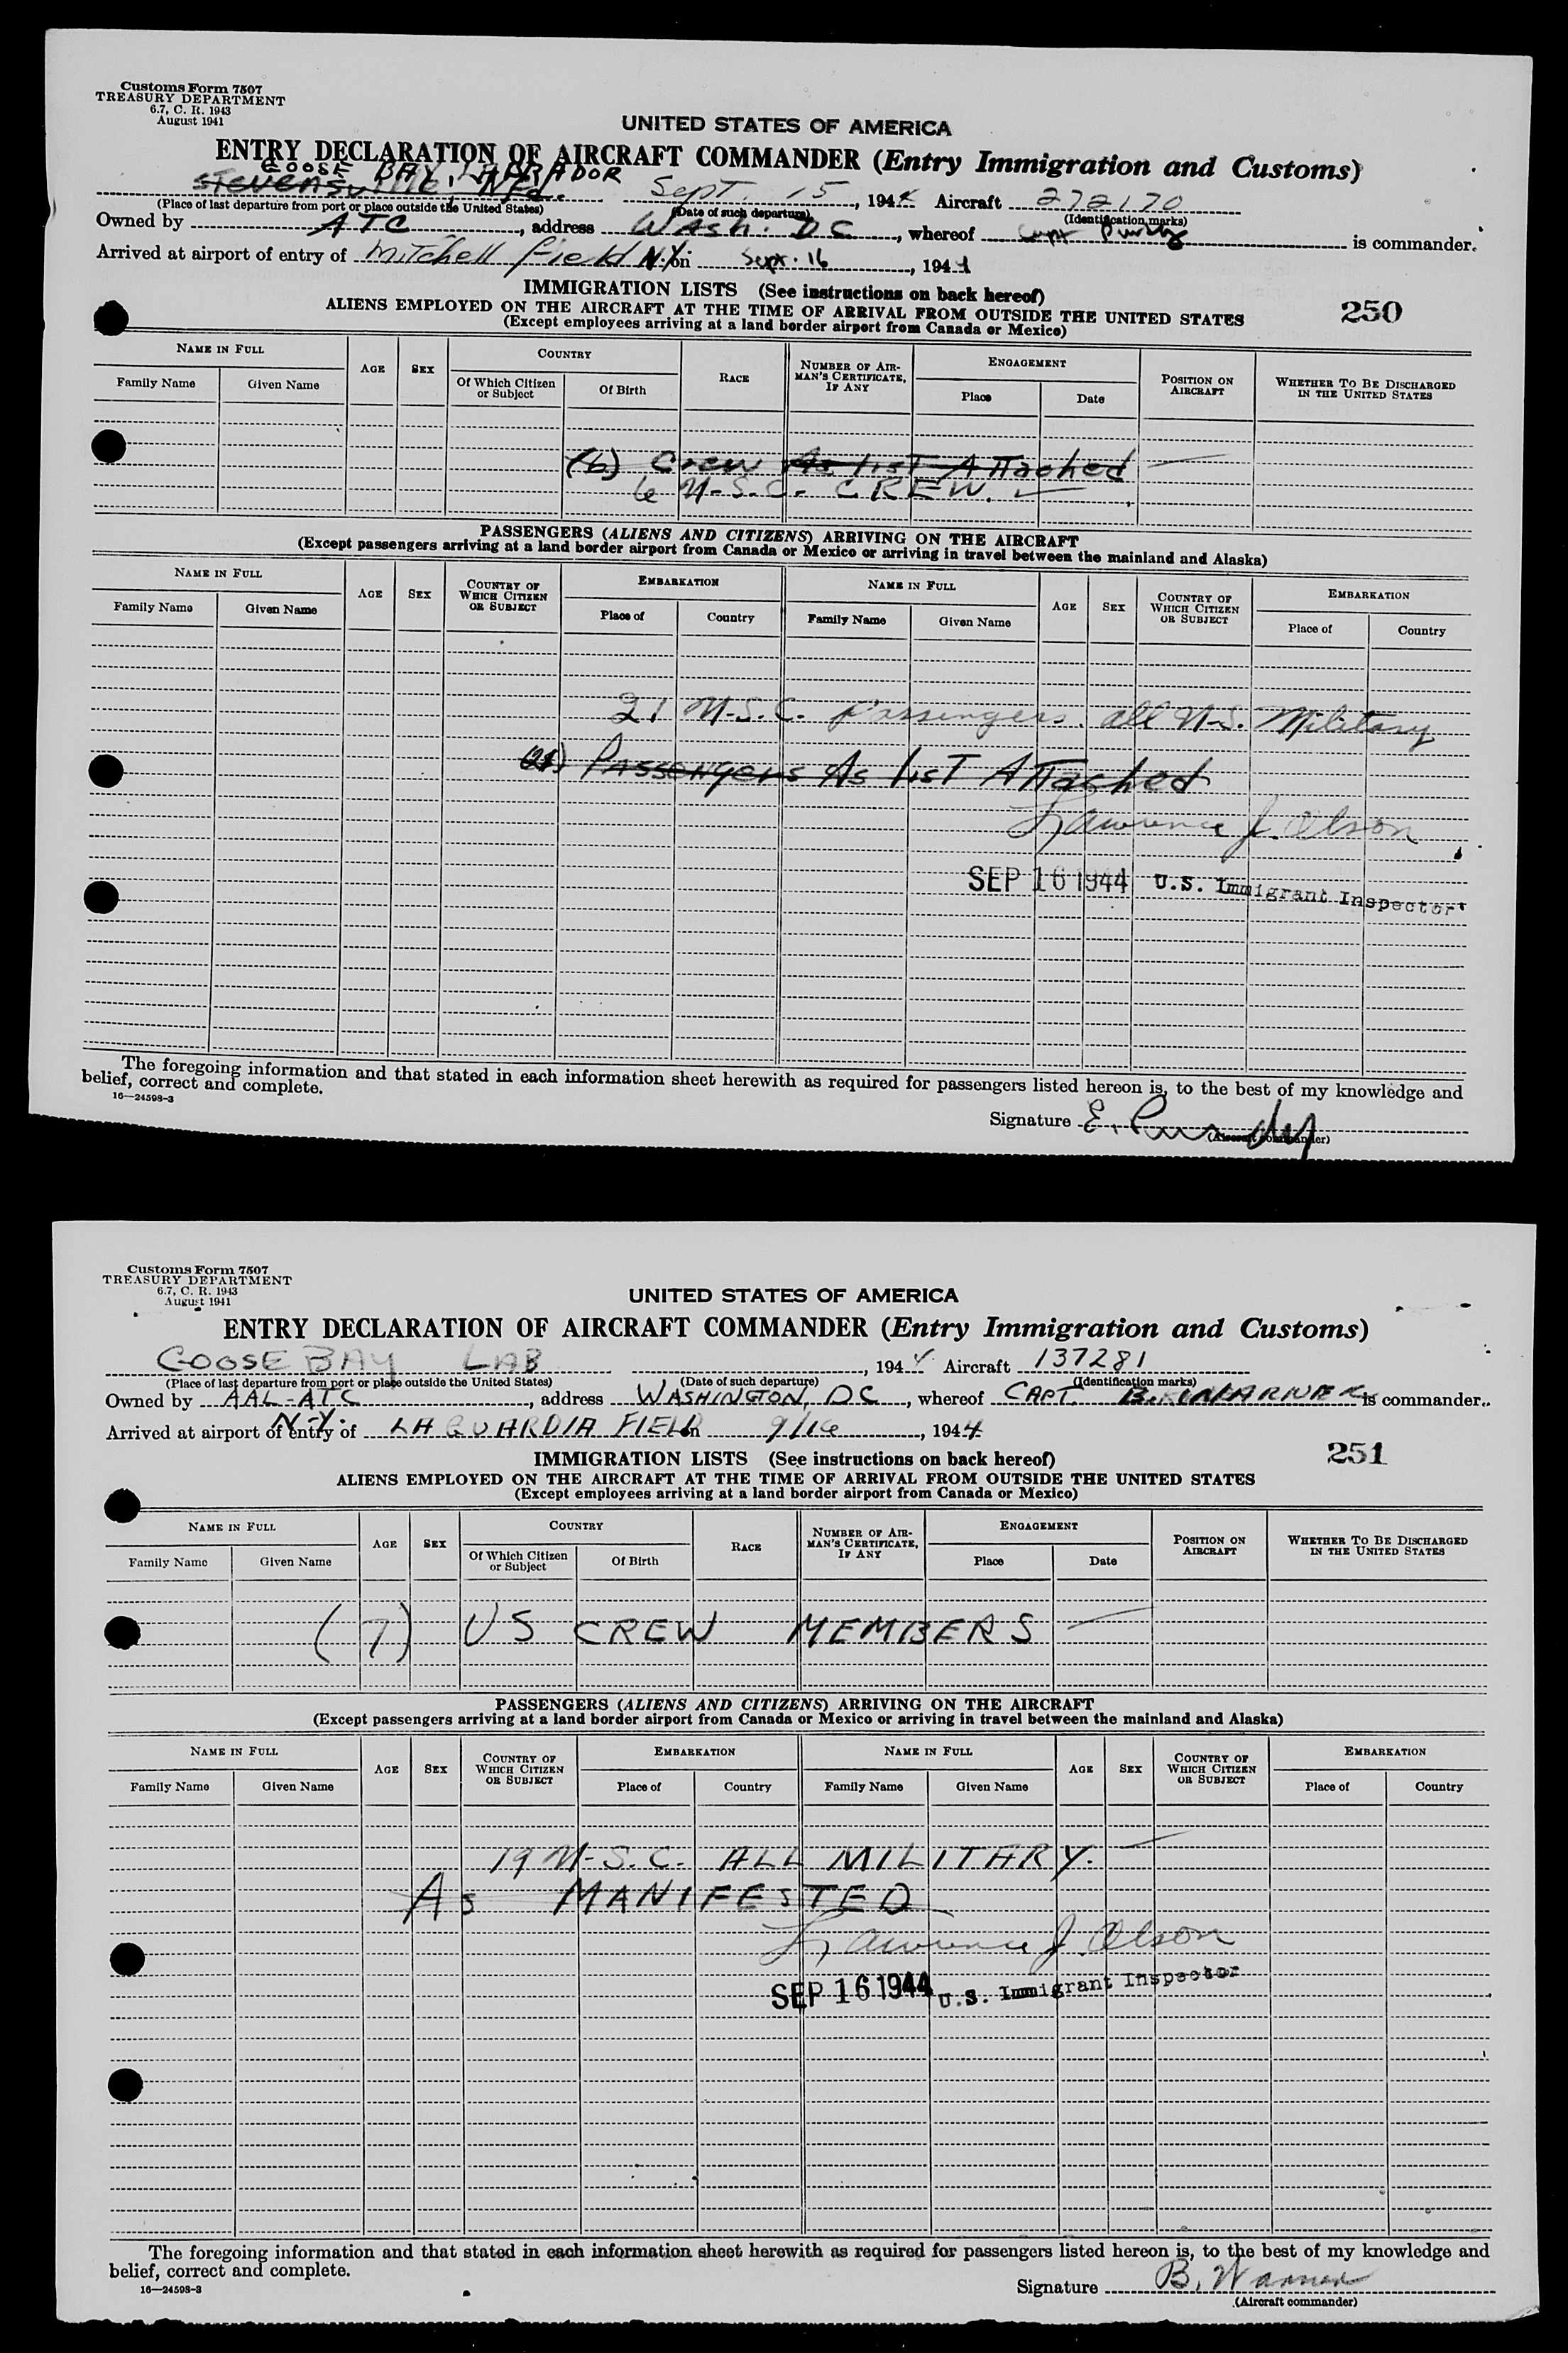 Customs Form 7507
TREASURY DEPARTMENT
6.7, C. R. 1943
August 1941
UNITED STATES OF AMERICA
ENTRY DECLARATION OF AIRCRAFT COMMANDER (Entry Immigration and Customs)
GOOSE BAY, LABRADOR
Stevensville, Nfd. Sept. 15, 1944 Aircraft 272170
(Place of last departure from port or place outside the United States) (Date of such departure) (Identification marks)
Owned by ATC, address Wash. DC, whereof Capt Purdy is commander.
Arrived at airport of entry of Mitchell Field N.Y. on Sept. 16, 1944
IMMIGRATION LISTS (See instructions on back hereof)
250
ALIENS EMPLOYED ON THE AIRCRAFT AT THE TIME OF ARRIVAL FROM OUTSIDE THE UNITED STATES
(Except employees arriving at a land border airport from Canada or Mexico)
NAME IN FULL AGE SEX COUNTRY RACE NUMBER OF AIRMAN'S CERTIFICATE, IF ANY ENGAGEMENT POSITION ON AIRCRAFT WHETHER TO BE DISCHARGED IN THE UNITED STATES
Family Name Given Name Of Which Citizen or Subject Of Birth Place Date
(6) Crew As list Attached
6 U.S.C. CREW.
PASSENGERS (ALIENS AND CITIZENS) ARRIVING ON THE AIRCRAFT
(Except passengers arriving at a land border airport from Canada or Mexico or arriving in travel between the mainland and Alaska)
NAME IN FULL AGE SEX COUNTRY OF WHICH CITIZEN OR SUBJECT EMBARKATION NAME IN FULL AGE SEX COUNTRY OF WHICH CITIZEN OR SUBJECT EMBARKATION
Family Name Given Name Place of Country Family Name Given Name Place of Country
21 U.S.C. Passengers. all U.S. Military
(21) Passengers As list Attached
Lawrence J. Olson
SEP 16 1944 U.S. Immigrant Inspector
The foregoing information and that stated in each information sheet herewith as required for passengers listed hereon is, to the best of my knowledge and
belief, correct and complete.
16—24598-3
Signature E. Purdy
(Aircraft commander)
Customs Form 7507
TREASURY DEPARTMENT
6.7, C. R. 1943
August 1941
UNITED STATES OF AMERICA
ENTRY DECLARATION OF AIRCRAFT COMMANDER (Entry Immigration and Customs)
GOOSE BAY LAB , 1944 Aircraft 137281
(Place of last departure from port or place outside the United States) (Date of such departure) (Identification marks)
Owned by AAL-ATC, address WASHINGTON, DC, whereof CAPT. B. WARNER is commander.
N.Y.
Arrived at airport of entry of LAGUARDIA FIELD on 9/16, 1944
IMMIGRATION LISTS (See instructions on back hereof)
251
ALIENS EMPLOYED ON THE AIRCRAFT AT THE TIME OF ARRIVAL FROM OUTSIDE THE UNITED STATES
(Except employees arriving at a land border airport from Canada or Mexico)
NAME IN FULL AGE SEX COUNTRY RACE NUMBER OF AIRMAN'S CERTIFICATE, IF ANY ENGAGEMENT POSITION ON AIRCRAFT WHETHER TO BE DISCHARGED IN THE UNITED STATES
Family Name Given Name Of Which Citizen or Subject Of Birth Place Date
(7) US CREW MEMBERS
PASSENGERS (ALIENS AND CITIZENS) ARRIVING ON THE AIRCRAFT
(Except passengers arriving at a land border airport from Canada or Mexico or arriving in travel between the mainland and Alaska)
NAME IN FULL AGE SEX COUNTRY OF WHICH CITIZEN OR SUBJECT EMBARKATION NAME IN FULL AGE SEX COUNTRY OF WHICH CITIZEN OR SUBJECT EMBARKATION
Family Name Given Name Place of Country Family Name Given Name Place of Country
19 U.S.C. ALL MILITARY.
As MANIFESTED
Lawrence J Olson
SEP 16 1944 U.S. Immigrant Inspector
The foregoing information and that stated in each information sheet herewith as required for passengers listed hereon is, to the best of my knowledge and
belief, correct and complete.
16—24598-3
Signature B. Warner
(Aircraft commander)